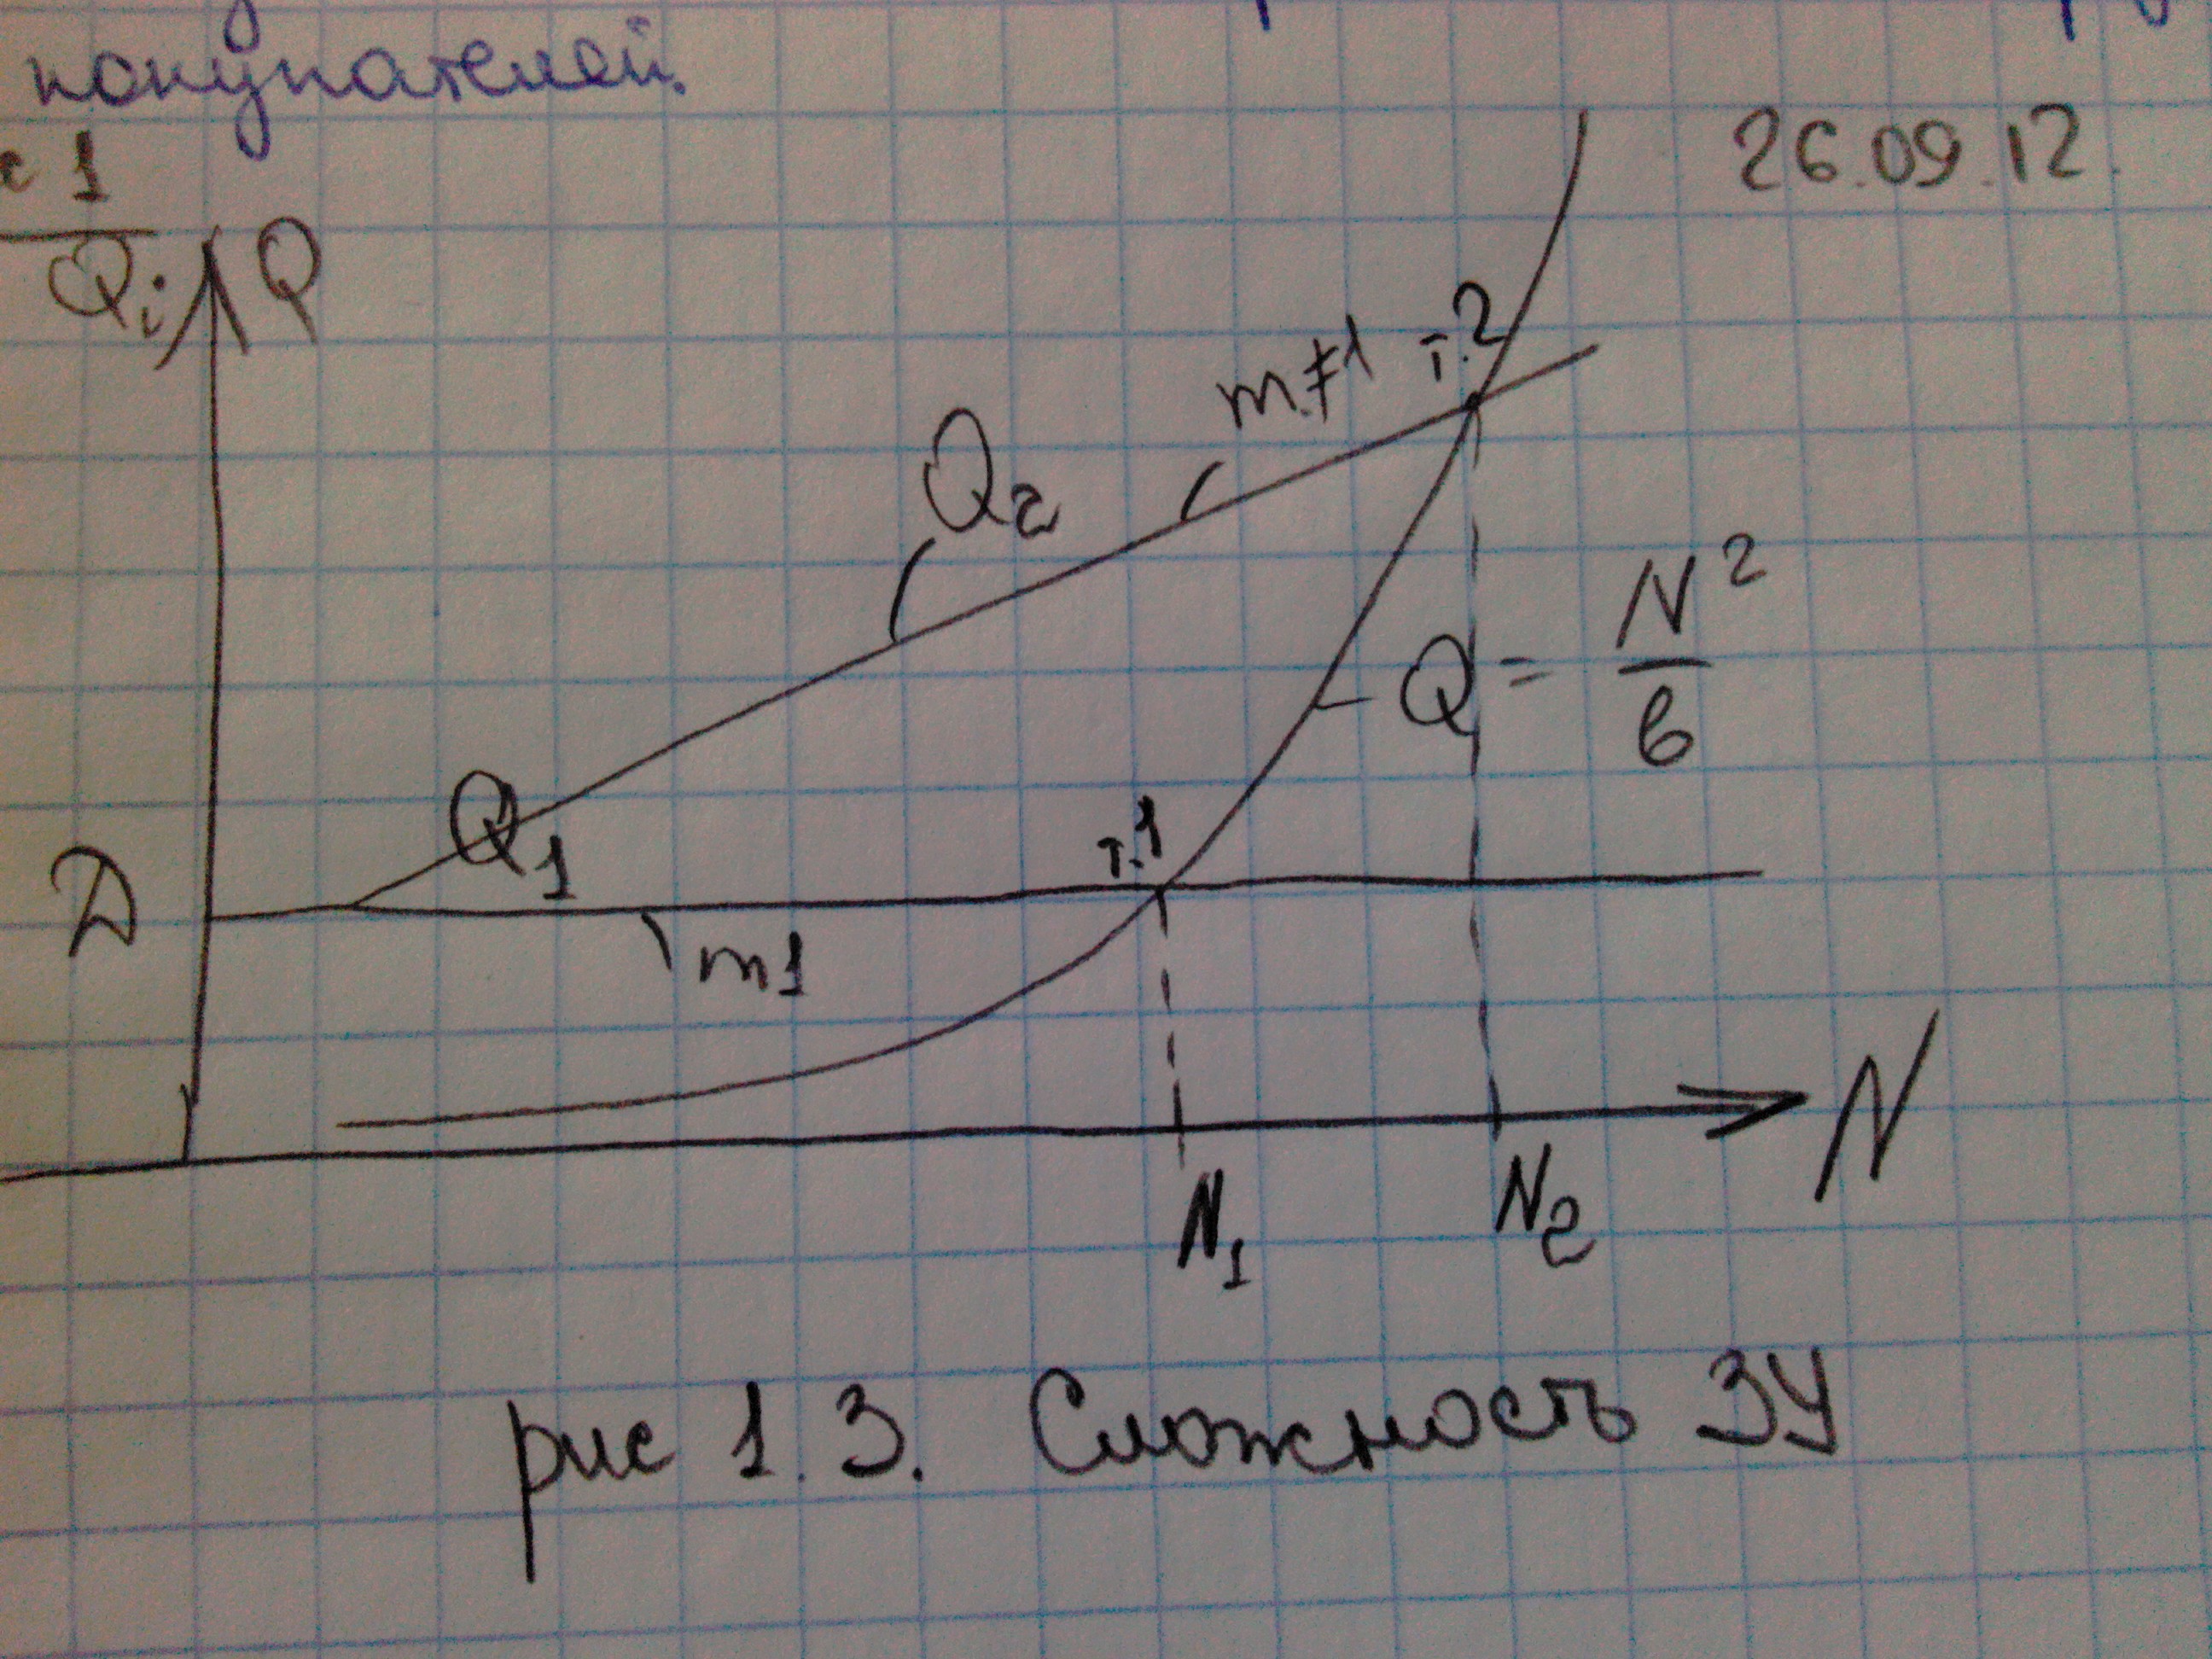 покупателей.
26.09.12.
с 1
Qi Q
m≠1 т.2
Q2
Q = N²/6
Q1
т.1
Д
m1
N
N1 N2
рис 1.3. Сложность ЗУ